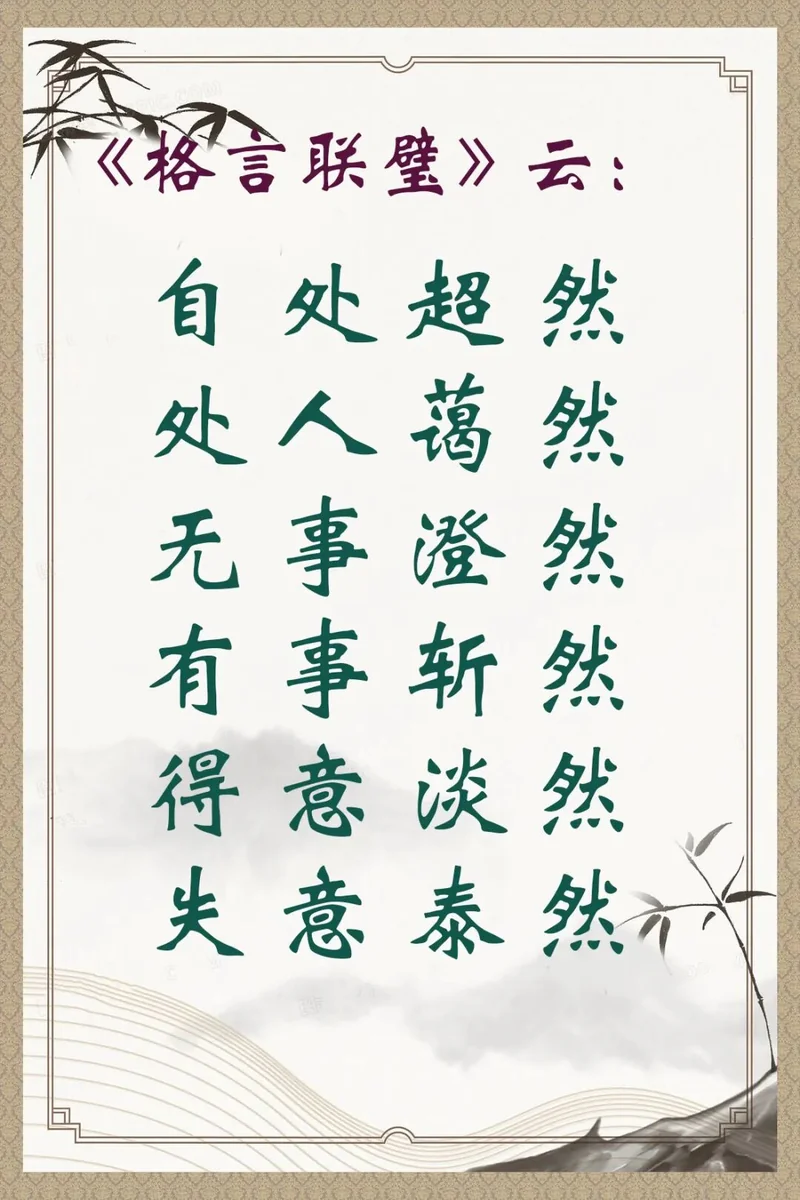 《格言联璧》云：
自处超然
处人蔼然
无事澄然
有事斩然
得意淡然
失意泰然